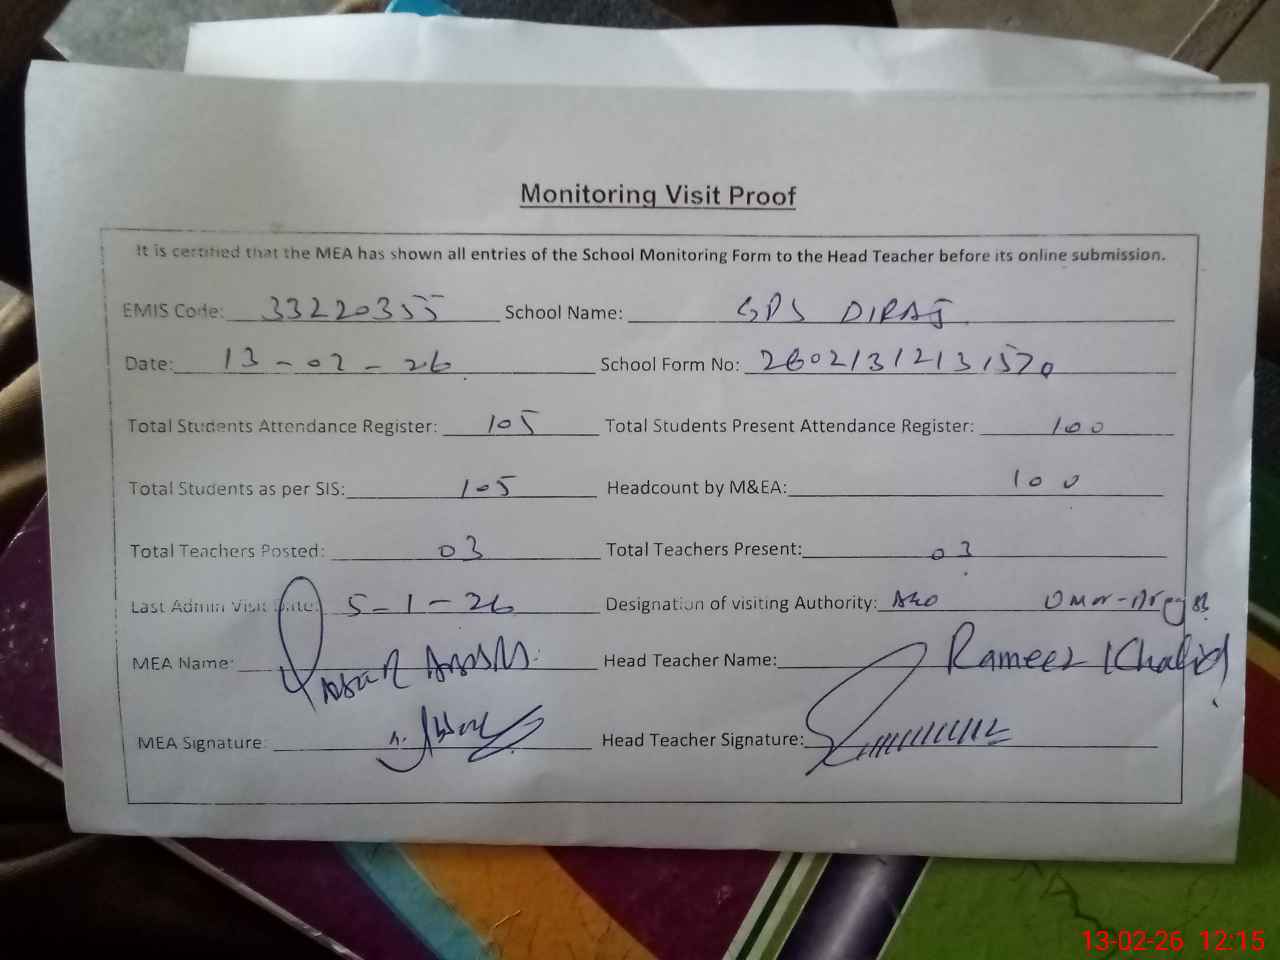 Monitoring Visit Proof
It is certified that the MEA has shown all entries of the School Monitoring Form to the Head Teacher before its online submission.
EMIS Code: 33220355 School Name: GPS DIRAJ
Date: 13-02-26 School Form No: 26021312131570
Total Students Attendance Register: 105 Total Students Present Attendance Register: 100
Total Students as per SIS: 105 Headcount by M&EA: 100
Total Teachers Posted: 03 Total Teachers Present: 03
Last Admin Visit Date: 5-1-26 Designation of visiting Authority: Omar
MEA Name: Head Teacher Name: Rameez Khalid
MEA Signature: Head Teacher Signature:
13-02-26 12:15